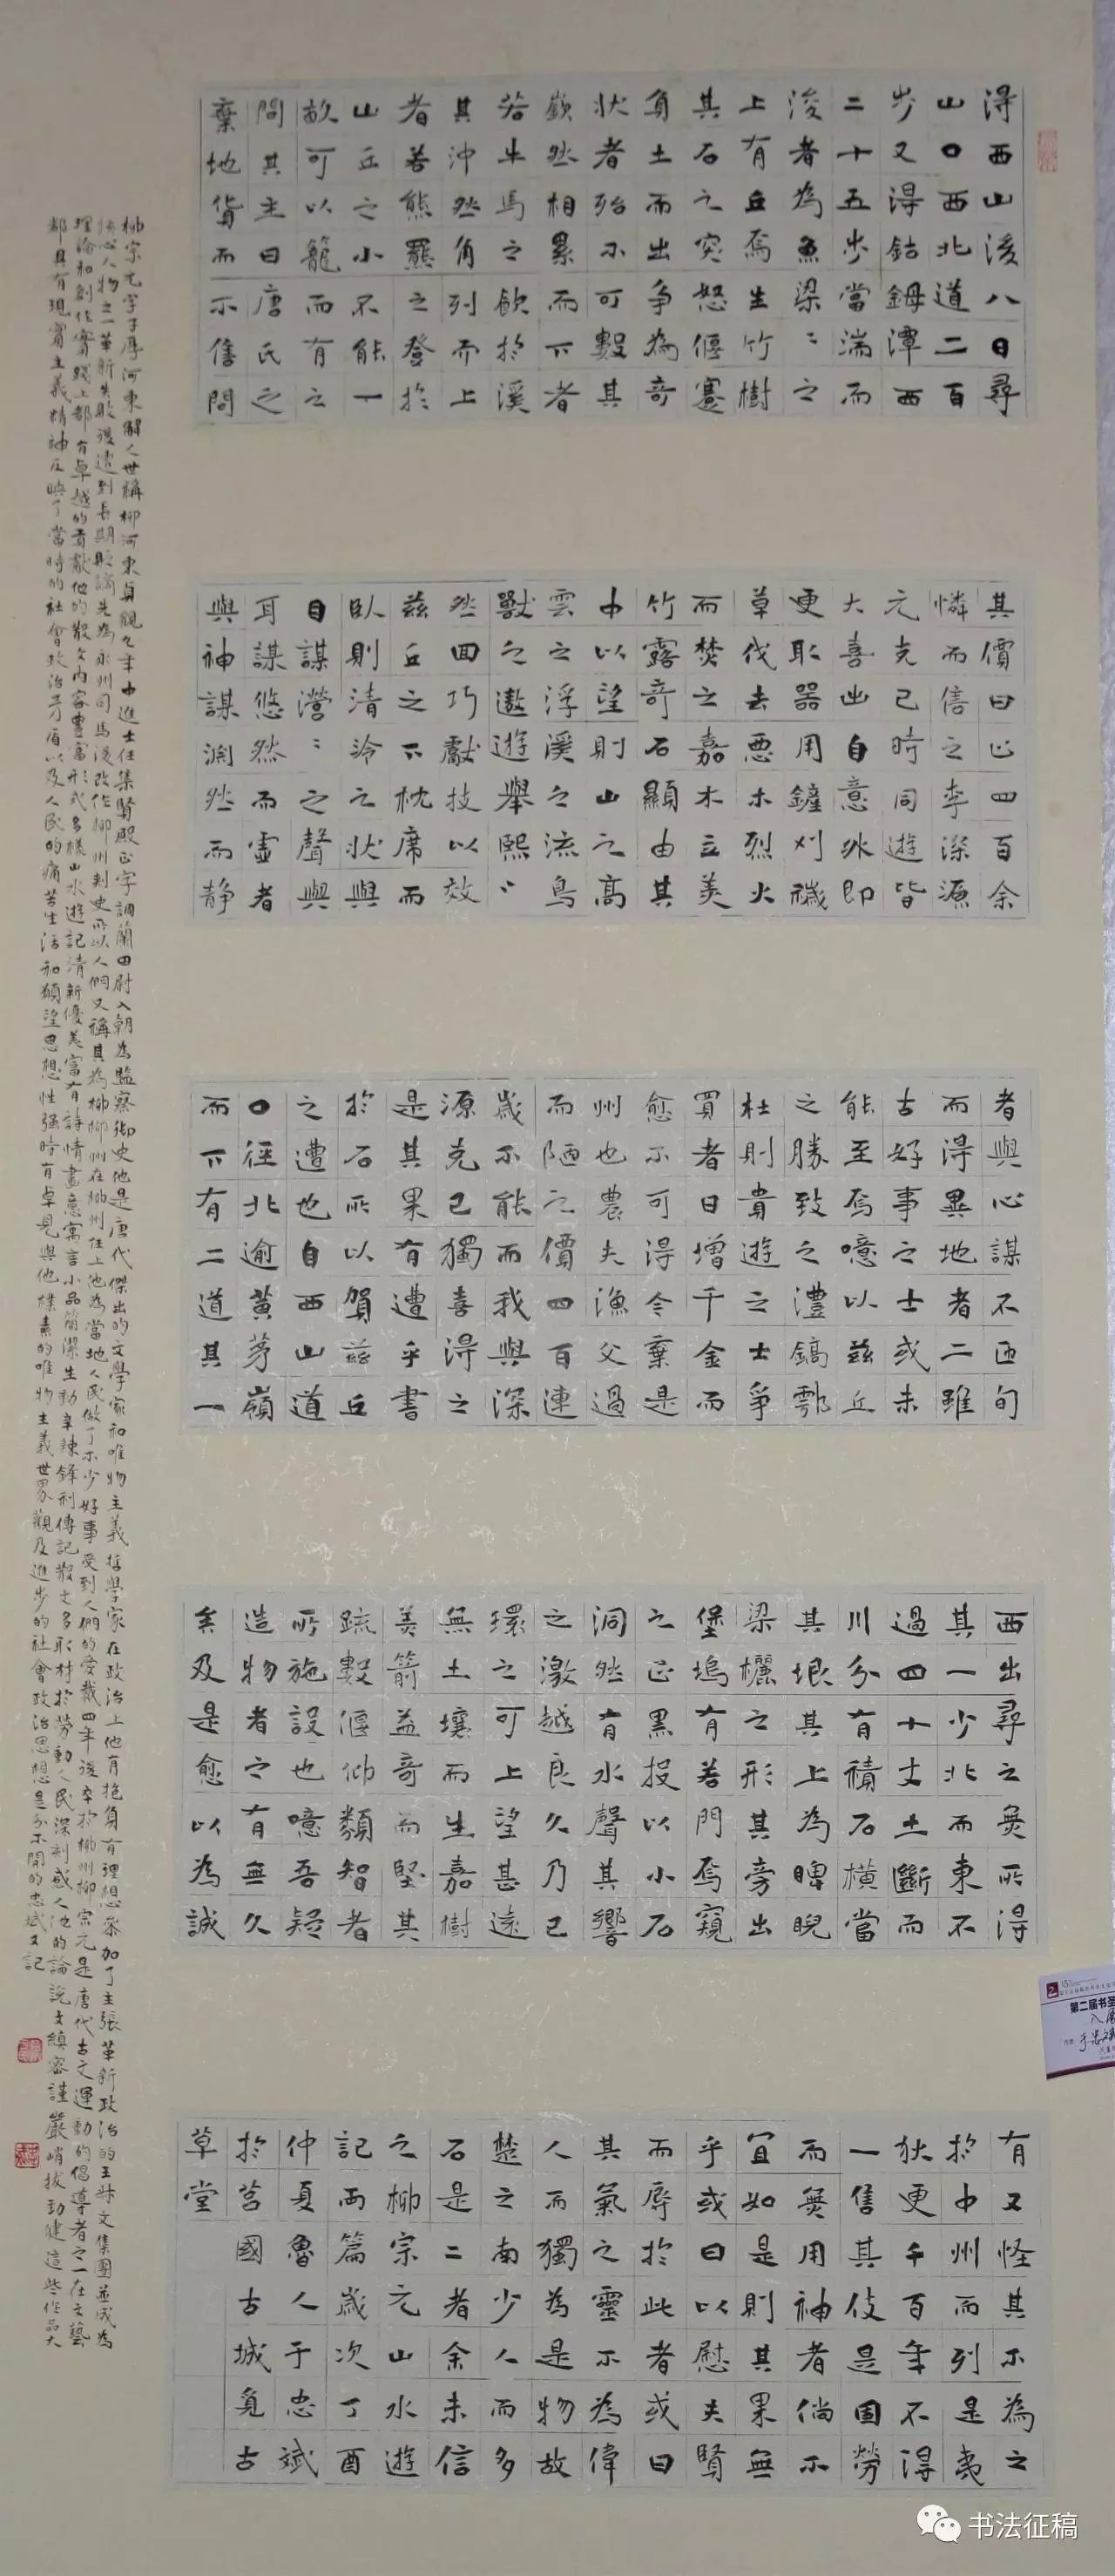 得西山後八日尋
山口西北道二百
步又得鈷鉧潭西
二十五步當湍而
浚者為魚梁〻之
上有丘焉生竹樹
其石之突怒偃蹇
負土而出爭為奇
狀者殆不可數其
嶔然相累而下者
若牛馬之飲於溪
其沖然角列而上
者若熊羆之登於
山丘之小不能一
畝可以籠而有之
問其主曰唐氏之
棄地貨而不售問
其價曰止四百余
憐而售之李深源
元克己時同遊皆
大喜出自意外即
更取器用鏟刈穢
草伐去惡木烈火
而焚之嘉木立美
竹露奇石顯由其
中以望則山之高
雲之浮溪之流鳥
獸之遨遊舉熙〻
然回巧獻技以效
茲丘之下枕席而
臥則清泠之狀與
目謀瀯〻之聲與
耳謀悠然而虛者
與神謀淵然而静
者與心謀不匝旬
而得異地者二雖
古好事之士或未
能至焉噫以茲丘
之勝致之澧鎬鄠
杜則貴遊之士爭
買者日增千金而
愈不可得今棄是
州也農夫漁父過
而陋之價四百連
歲不能而我與深
源克己獨喜得之
是其果有遭乎書
於石所以賀茲丘
之遭也自西山道
口徑北逾黃茅嶺
而下有二道其一
西出尋之無所得
其一少北而東不
過四十丈土斷而
川分有積石橫當
其垠其上為睥睨
梁欐之形其旁出
堡塢有若門焉窺
之正黑投以小石
洞然有水聲其響
之激越良久乃已
環之可上望甚遠
無土壤而生嘉樹
美箭益奇而堅其
疏數偃仰類智者
所施設也噫吾疑
造物者之有無久
矣及是愈以為誠
有又怪其不為之
於中州而列是夷
狄更千百年不得
一售其伎是固勞
而無用神者倘不
宜如是則其果無
乎或曰以慰夫賢
而辱於此者或曰
其氣之靈不為偉
人而獨為是物故
楚之南少人而多
石是二者余未信
之柳宗元山水遊
記兩篇歲次丁酉
仲夏魯人于忠斌
於莒國古城覓古
草堂
柳宗元字子厚河東解人世稱柳河東貞觀九年中進士任集賢殿正字調蘭田尉入朝為監察御史他是唐代傑出的文學家和唯物主義哲學家在政治上他有抱負有理想參加了主張革新政治的王叔文集團並成為
核心人物之一革新失敗後遭到長期貶謫先為永州司馬後改作柳州刺史所以人們又稱其為柳柳州在柳州任上他為當地人民做了不少好事受到人們的愛戴四年後卒於柳州柳宗元是唐代古文運動的倡導者之一在文藝
理論和創作實踐上都有卓越的貢獻他的散文内容豐富形式多樣山水遊記清新優美富有詩情畫意寓言小品簡潔生動辛辣鋒利傳記散文多取材於勞動人民深刻感人他的論說文縝密謹嚴峭拔勁健這些作品大
都具有現實主義精神反映了當時的社會政治矛盾以及人民的痛苦生活和願望思想性强時有卓見與他樸素的唯物主義世界觀及進步的社會政治思想是分不開的忠斌又記
第二届书圣
书法征稿